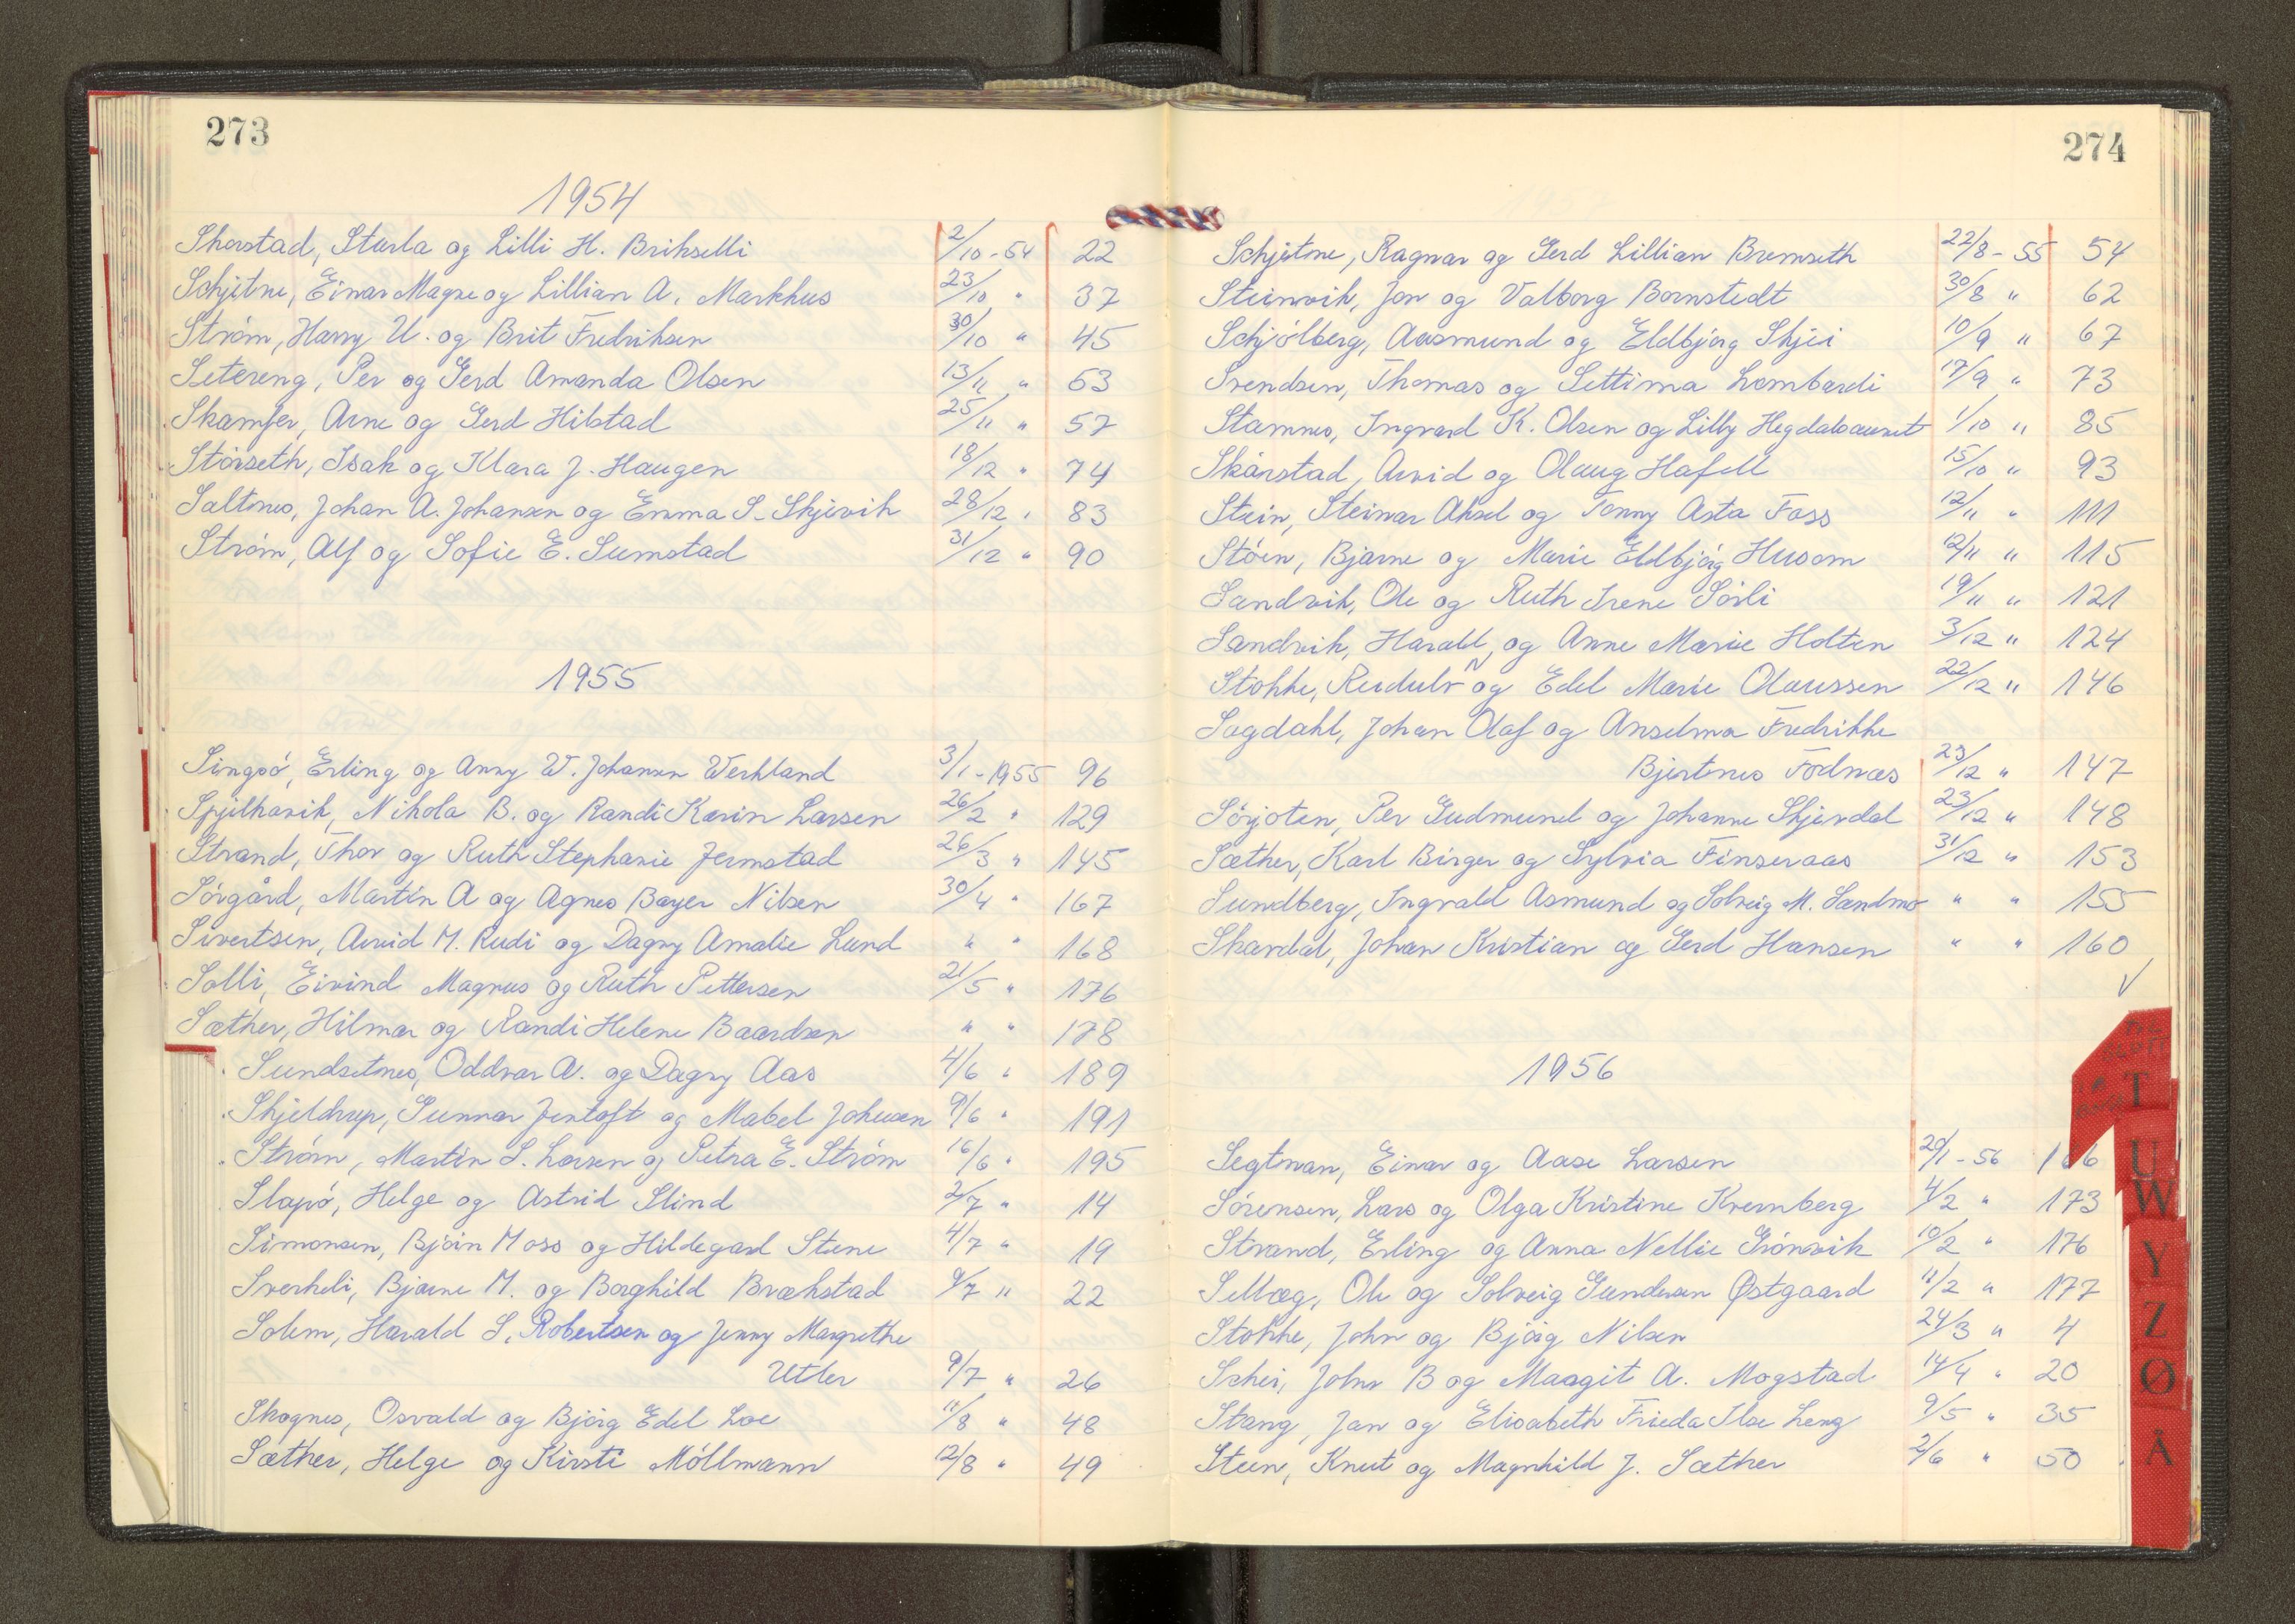 273
1954
Skorstad, Sturla og Lilli H. Brikselli 2/10 - 54 22
Schjetne, Einar Magne og Lillian A. Markhus 23/10 " 37
Strøm, Harry U. og Brit Fredriksen 30/10 " 45
Setereng, Per og Gerd Amanda Olsen 13/11 " 53
Skamfer, Arne og Gerd Hilstad 25/11 " 57
Størseth, Isak og Klara J. Haugen 18/12 " 74
Saltnes, Johan A. Johansen og Emma S. Skjevik 28/12 " 83
Strøm, Alf og Sofie E. Sumstad 31/12 " 90
1955
Singsø, Erling og Anny W. Johansen Werkland 3/1 - 1955 96
Spjelkavik, Nikola B. og Randi Karin Larsen 26/2 " 129
Strand, Thor og Ruth Stephanie Jermstad 26/3 " 145
Sørgård, Martin A og Agnes Bøyer Nilsen 30/4 " 167
Sivertsen, Arvid M. Rudi og Dagny Amalie Lund " " 168
Solli, Eivind Magnus og Ruth Pettersen 21/5 " 176
Sæther, Hilmar og Randi Helene Baardsen " " 178
Sundsetnes, Oddvar A. og Dagny Aas 4/6 " 189
Skjeldrup, Gunnar Jentoft og Mabel Johnsen 9/6 " 191
Strøm, Martin L. Larsen og Petra E. Strøm 16/6 " 195
Slapø, Helge og Astrid Slind 2/7 " 14
Simonsen, Bjørn Moss og Hildegard Stene 4/7 " 19
Sverkeli, Bjarne M. og Borghild Brækstad 9/7 " 22
Solem, Harald S. Robertsen og Jenny Margrethe
Utler 9/7 " 26
Skognes, Osvald og Bjørg Edel Loe 11/8 " 48
Sæther, Helge og Kirsti Møllmann 12/8 " 49
274
Schjetne, Ragnar og Gerd Lillian Bremseth 22/8 - 55 54
Steinvik, Jon og Valborg Bornstedt 30/8 " 62
Schjølberg, Aasmund og Eldbjørg Skjei 10/9 " 67
Svendsen, Thomas og Settima Lombardi 17/9 " 73
Stamnes, Ingvard K. Olsen og Lilly Hegdalsaunet 1/10 " 85
Skårstad, Arvid og Olaug Hafell 15/10 " 93
Stein, Steinar Aksel og Tonny Asta Foss 12/11 " 111
Støen, Bjarne og Marie Eldbjørg Husom 12/11 " 115
Sandvik, Ole og Ruth Irene Sørli 19/11 " 121
Sandvik, Harald, og Anne Marie Holten 3/12 " 124
Stokke, Reidulv N og Edel Marie Olaussen 22/12 " 146
Sogdahl, Johan Olaf og Anselma Fredrikke
Bjertnes Fodnæs 23/12 " 147
Sørjoten, Per Gudmund og Johanne Skjerdal 23/12 " 148
Sæther, Karl Birger og Sylvia Finseraas 31/12 " 153
Sundberg, Ingvald Asmund og Solveig M. Sandmo " " 155
Skardal, Johan Kristian og Gerd Hansen " " 160
1956
Segtnan, Einar og Aase Larsen 20/1 - 56 166
Sørensen, Lars og Olga Kristine Kvernberg 4/2 " 173
Strand, Erling og Anna Nellie Grønvik 10/2 " 176
Selbæg, Ole og Solveig Gundersen Østgaard 11/2 " 177
Stokke, John og Bjørg Nilsen 24/3 " 4
Schei, John B og Maagit A. Mogstad 14/4 " 20
Stang, Jan og Elisabeth Frieda Ilse Lenz 9/5 " 35
Steen, Knut og Magnhild J. Sæther 2/6 " 50
T
U
W
Y
Z
Ø
Å